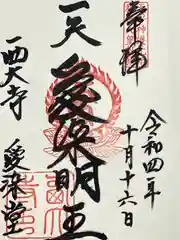 奉拝
令和四年
十月十六日
一天
愛染明王
西大寺
愛染堂